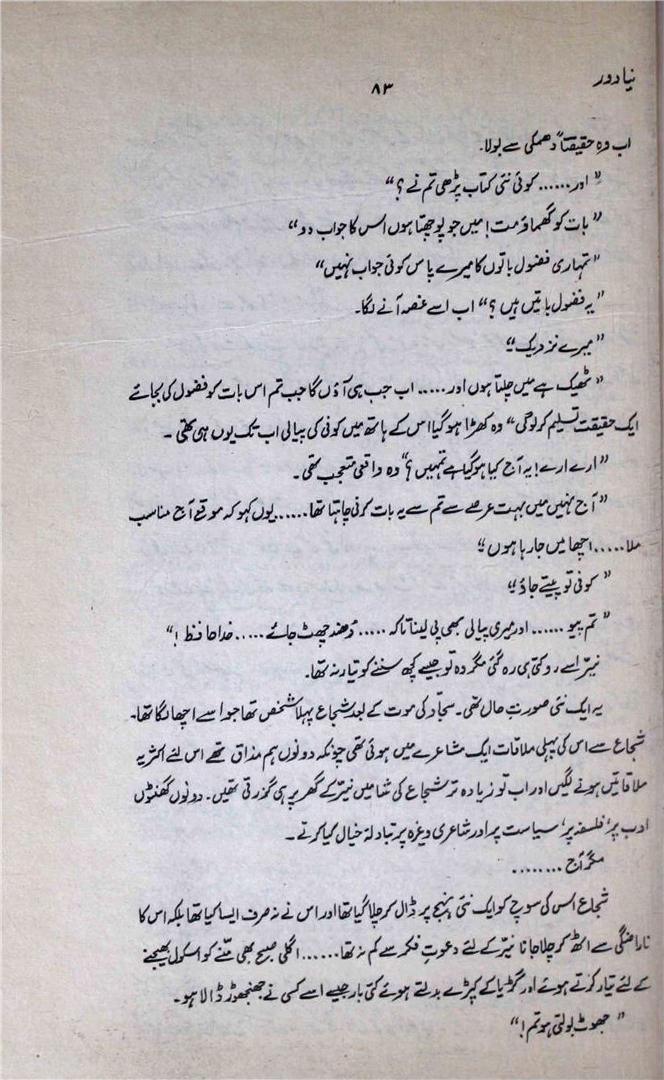 نیا دور
۸۳
اب وہ حقیقتاً دھمکی سے بولا۔
”اور...... کوئی نئی کتاب پڑھی تم نے؟“
”بات کو گھماؤ مت! میں جو پوچھتا ہوں اس کا جواب دو“
”تمہاری فضول باتوں کا میرے پاس کوئی جواب نہیں“
”یہ فضول باتیں ہیں؟“ اب اسے غصہ آنے لگا۔
”میرے نزدیک“
”ٹھیک ہے میں چلتا ہوں اور..... اب جب ہی آؤں گا جب تم اس بات کو فضول کی بجائے
ایک حقیقت تسلیم کر لوگی“ وہ کھڑا ہو گیا اس کے ہاتھ میں کوفی کی پیالی اب تک یوں ہی تھی۔
”ارے ارے! یہ آج کیا ہو گیا ہے تمہیں؟“ وہ واقعی متعجب تھی۔
”آج نہیں میں بہت عرصے سے تم سے یہ بات کرنی چاہتا تھا...... یوں کہو کہ موقع آج مناسب
ملا..... اچھا میں جا رہا ہوں“
”کوفی تو پیتے جاؤ“
”تم پیو...... اور میری پیالی بھی پی لینا تاکہ ..... دُھند چھٹ جائے ..... خدا حافظ!“
نیّر اسے روکتی ہی رہ گئی مگر وہ تو جیسے کچھ سننے کو تیار نہ تھا۔
یہ ایک نئی صورتِ حال تھی۔ سجّاد کی موت کے بعد شجاع پہلا شخص تھا جو اسے اچھا لگا تھا۔
شجاع سے اس کی پہلی ملاقات ایک مشاعرے میں ہوئی تھی چونکہ دونوں ہم مذاق تھے اس لئے اکثر یہ
ملاقاتیں ہونے لگیں اور اب تو زیادہ تر شجاع کی شامیں نیّر کے گھر پر ہی گذرتی تھیں۔ دونوں گھنٹوں
ادب پر، فلسفہ پر، سیاست پر اور شاعری وغیرہ پر تبادلۂ خیال کیا کرتے۔
مگر آج ........
شجاع اس کی سوچ کو ایک نئی نہج پر ڈال کر چلا گیا تھا اور اس نے نہ صرف ایسا کیا تھا بلکہ اس کا
ناراضگی سے اٹھ کر چلا جانا نیّر کے لئے دعوتِ فکر سے کم نہ تھا...... اگلی صبح بھی منّے کو اسکول بھیجنے
کے لئے تیار کرتے ہوئے اور گڑیا کے کپڑے بدلتے ہوئے کئی بار جیسے اسے کسی نے جھنجھوڑ ڈالا ہو۔
”جھوٹ بولتی ہو تم!“